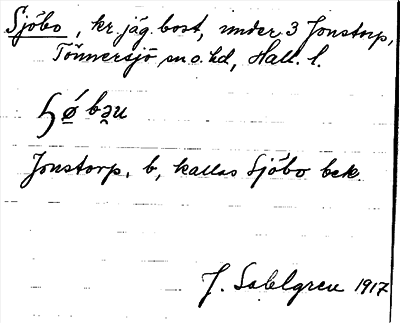 Sjöbo, kr. jäg. bost, under 3 Jonstorp,
Tönnersjö sn o. hd, Hall. l.
Jonstorp, b, kallas Sjöbo bek.
J. Sahlgren 1917